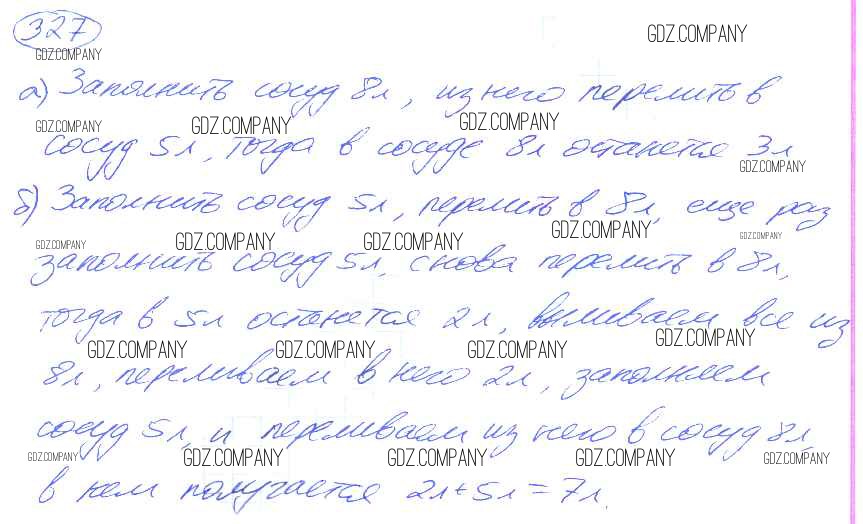 327
GDZ.COMPANY
GDZ.COMPANY
а) Заполнить сосуд 8л, из него перелить в
GDZ.COMPANY GDZ.COMPANY GDZ.COMPANY
сосуд 5л, тогда в сосуде 8л останется 3л
GDZ.COMPANY
б) Заполнить сосуд 5л, перелить в 8л, еще раз
GDZ.COMPANY GDZ.COMPANY GDZ.COMPANY GDZ.COMPANY GDZ.COMPANY
заполнить сосуд 5л, снова перелить в 8л,
тогда в 5л останется 2л, выливаем все из
GDZ.COMPANY GDZ.COMPANY GDZ.COMPANY GDZ.COMPANY
8л, переливаем в него 2л, заполняем
сосуд 5л, и переливаем из него в сосуд 8л,
GDZ.COMPANY GDZ.COMPANY GDZ.COMPANY GDZ.COMPANY GDZ.COMPANY
в нем получается 2л+5л=7л.